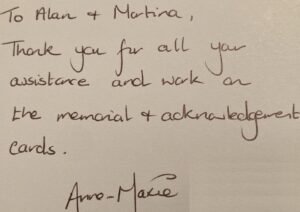 To Alan & Martina,
Thank you for all your
assistance and work on
the memorial & acknowledgement
cards.
Anne-Marie